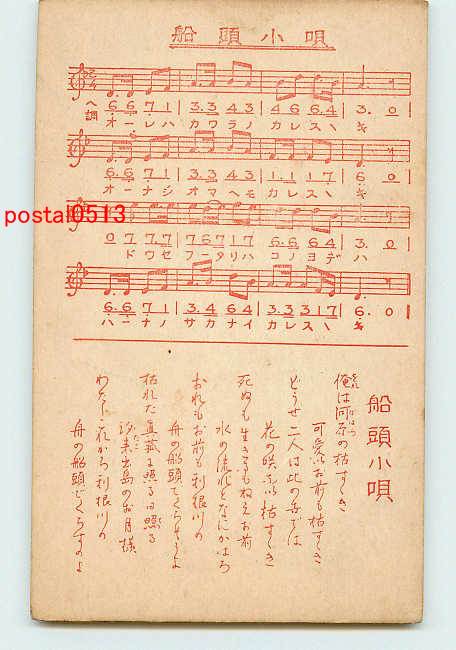 船頭小唄
ヘ調
6 6 7 1 | 3.3 4 3 | 4 6 6.4 | 3. 0
オーレハ カワラノ カレスヽ キ
6.6 7 1 | 3.3 4 3 | 1.1 1 7 | 6. 0
オーナシ オマヘモ カレスヽ キ
postal0513
0 7 7.7 | 7 6 7 1 7 | 6.6 6 4 | 3. 0
ドウセ フータリハ コノヨデ ハ
6.6 7 1 | 3.4 6 4 | 3.3 3 1 7 | 6. 0
ハーナノ サカナイ カレスヽ キ
船頭小唄
俺は河原の枯すゝき
可愛いお前も枯すゝき
どうせ二人は此の世では
花の咲ない枯すゝき
死ぬも生きるもねえお前
水の流れとなにかはろ
おれもお前も利根川の
舟の船頭でくらさうよ
枯れた真菰に照る
お月様
わたしこれから利根川の
舟の船頭でくらすのよ